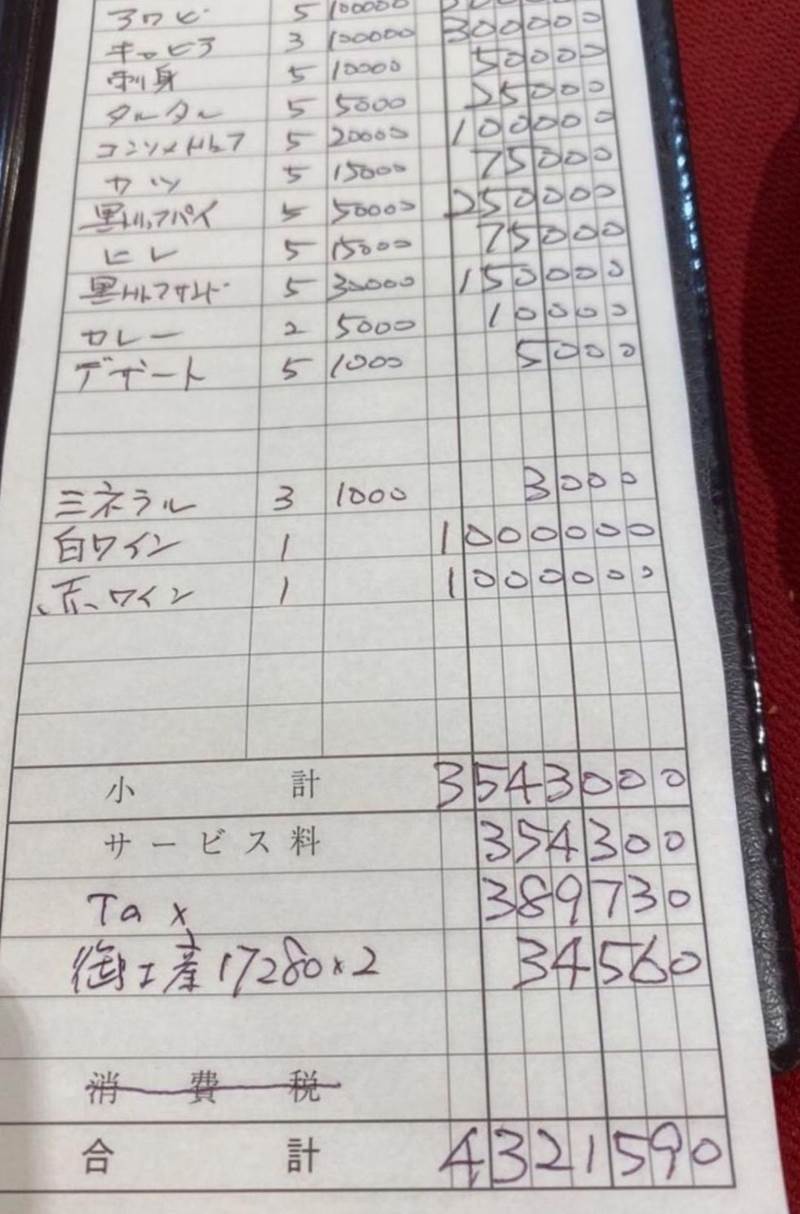 アワビ 5 100000 500000
キャビア 3 100000 300000
刺身 5 10000 50000
タルタル 5 5000 25000
コンソメトリュフ 5 20000 100000
カツ 5 15000 75000
黒トリュフパイ 5 50000 250000
ヒレ 5 15000 75000
黒トリュフサンド 5 30000 150000
カレー 2 5000 10000
デザート 5 1000 5000
ミネラル 3 1000 3000
白ワイン 1 1000000
赤ワイン 1 1000000
小計 3543000
サービス料 354300
Tax 389730
御土産17280×2 34560
消費税
合計 4321590